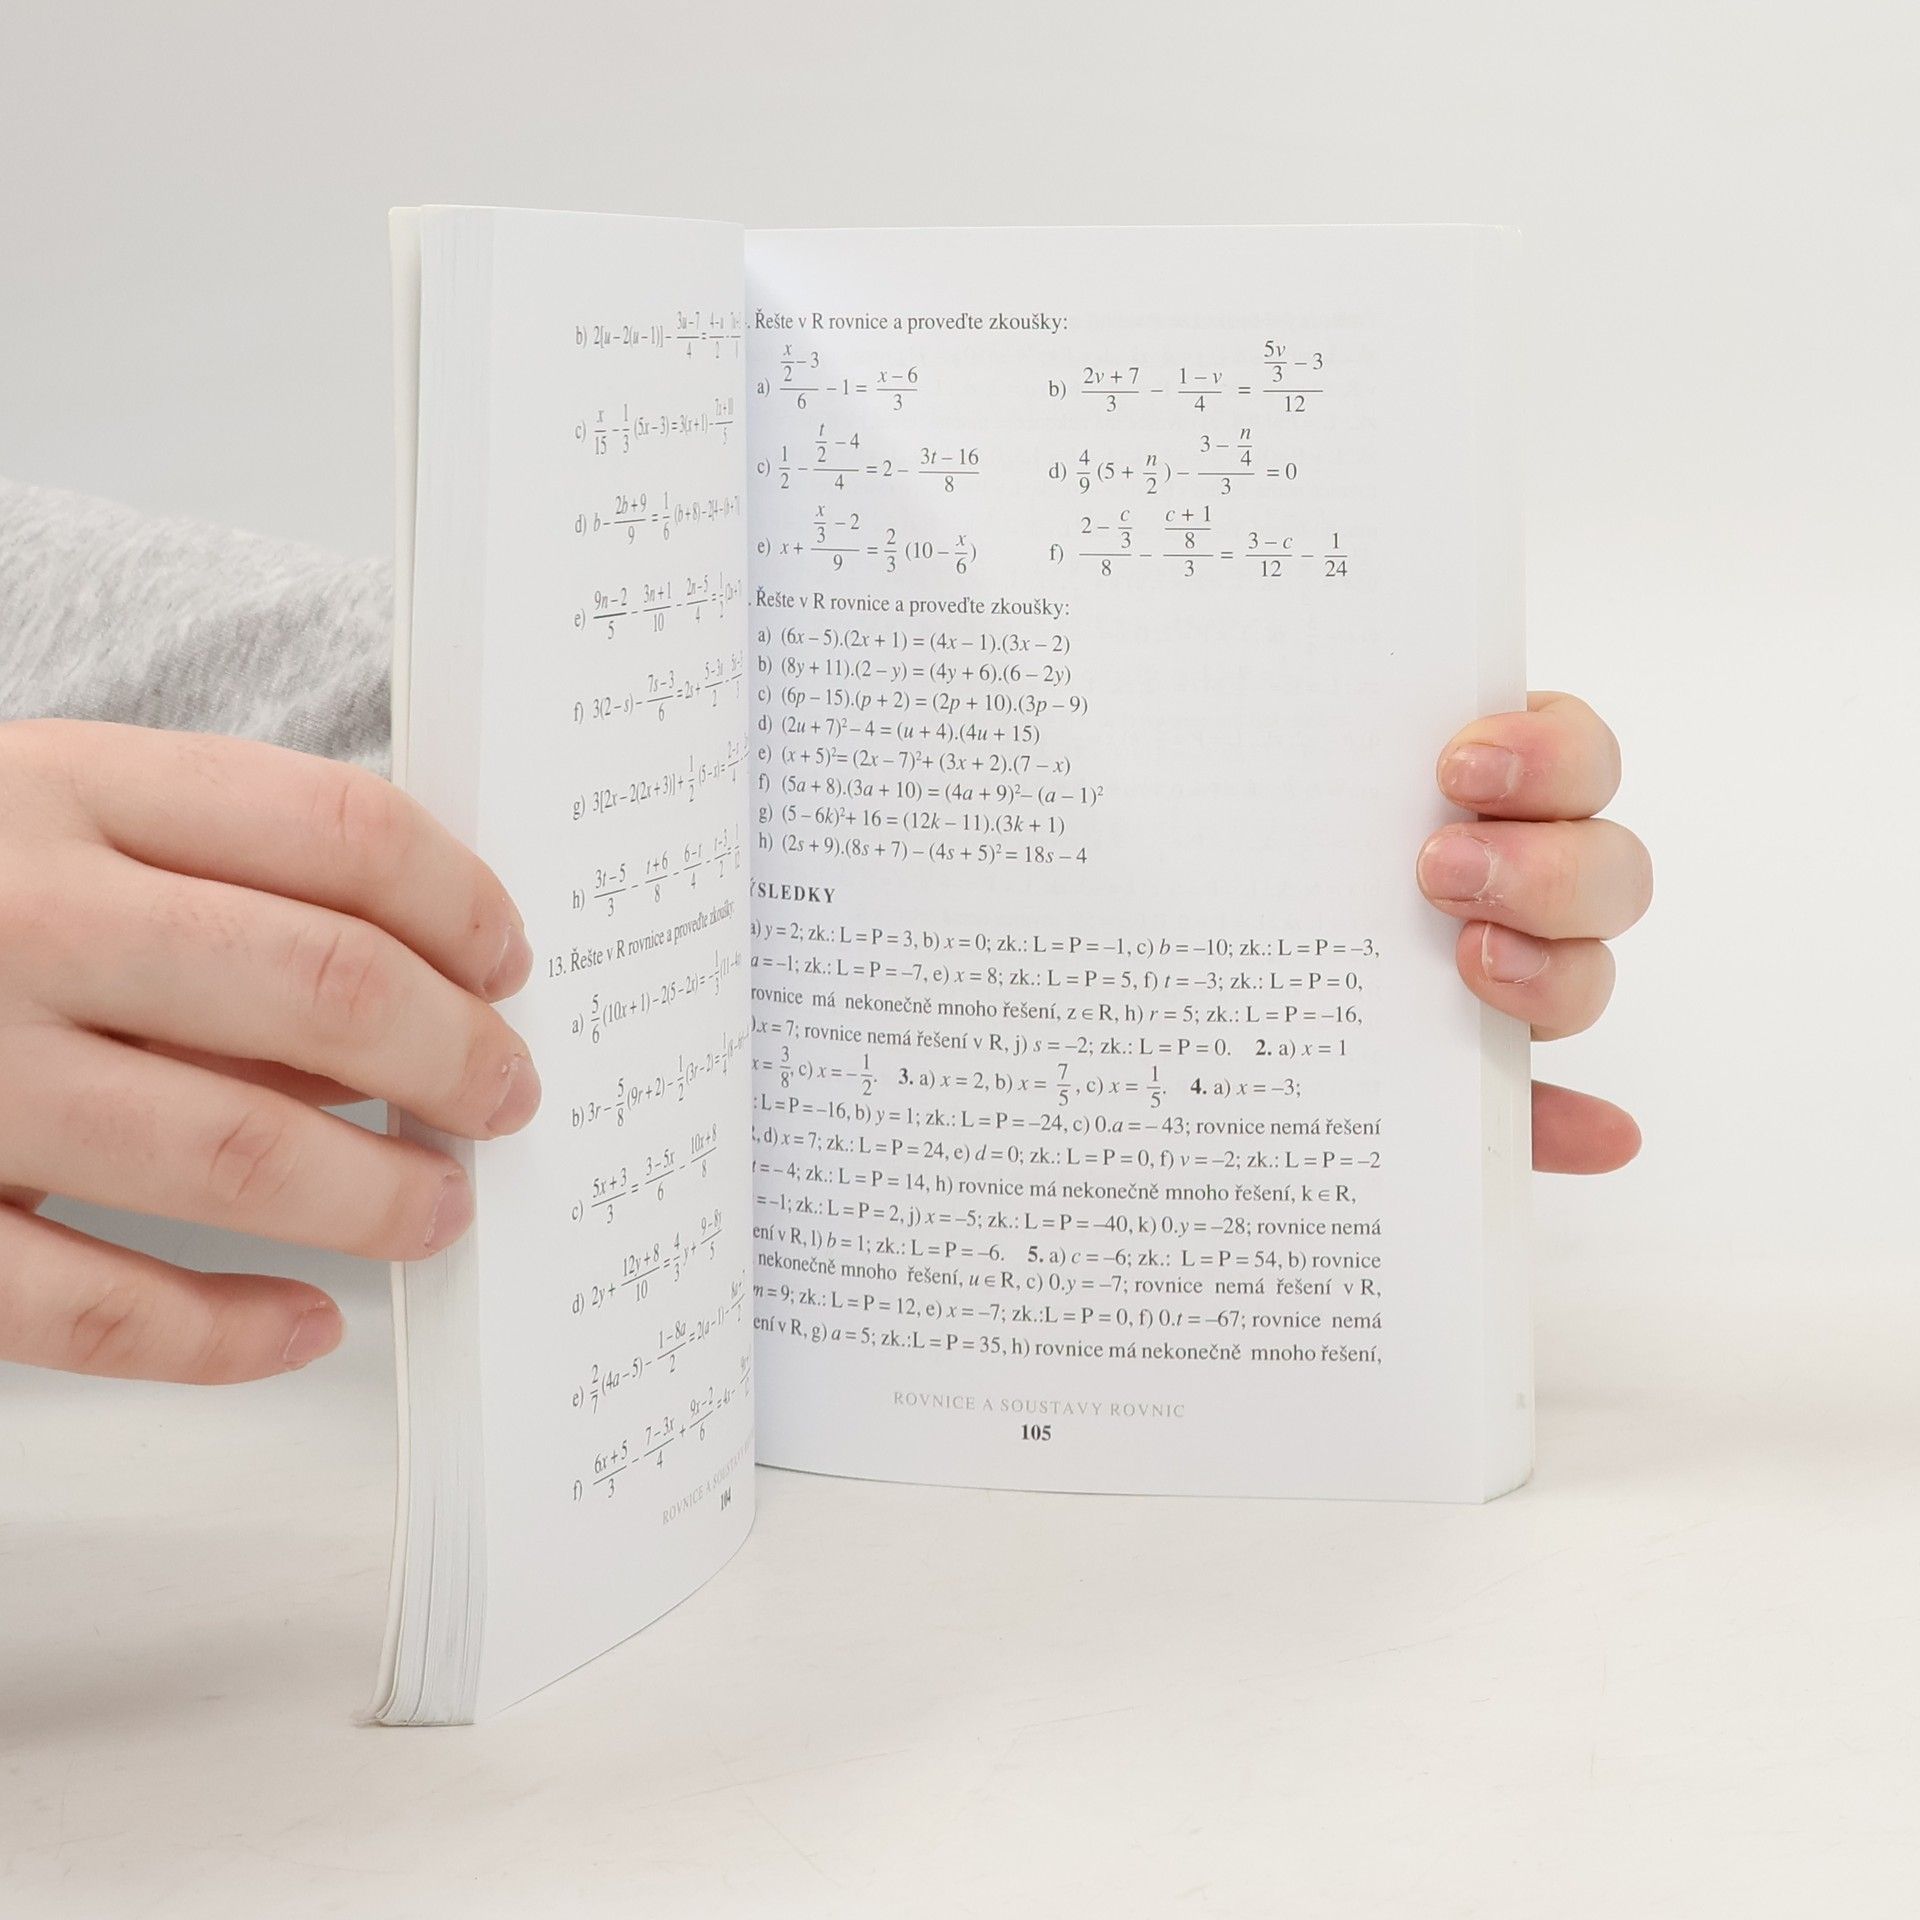 b) 2[u – 2(u – 1)] – 3u – 7/4 = 4 – u/2 –
c) x/15 – 1/3 (5x – 3) = 3(x + 1) – 7x + 10/5
d) b – 2b + 9/9 = 1/6 (b + 8) –
e) 9n – 2/5 – 3n + 1/10 – 2n – 5/4 = 1/2
f) 3(2 – s) – 7s – 3/6 = 2s + 5 – 3s/2 –
g) 3[2x – 2(2x + 3)] + 1/2 (5 – x) =
h) 3t – 5/3 – t + 6/8 – 6 – t/4 – t – 3/2 = 1/12
13. Řešte v R rovnice a proveďte zkoušky:
a) 5/6 (10x + 1) – 2(5 – 2x) = – 1/3
b) 3r – 5/8 (9r + 2) – 1/2 (3r – 2) = 1/4
c) 5x + 3/3 = 3 – 5x/6 – 10x + 8/8
d) 2y + 12y + 8/10 = 4/3 y + 9 – 8y/5
e) 2/7 (4a – 5) – 1 – 8a/2 = 2(a – 1) –
f) 6x + 5/3 – 7 – 3x/4 + 9x – 2/6 =
ROVNICE A
104
. Řešte v R rovnice a proveďte zkoušky:
a) (x/2 – 3)/6 – 1 = x – 6/3 b) 2v + 7/3 – 1 – v/4 = (5v/3 – 3)/12
c) 1/2 – (t/2 – 4)/4 = 2 – 3t – 16/8 d) 4/9 (5 + n/2) – (3 – n/4)/3 = 0
e) x + (x/3 – 2)/9 = 2/3 (10 – x/6) f) (2 – c/3)/8 – ((c + 1)/8)/3 = 3 – c/12 – 1/24
. Řešte v R rovnice a proveďte zkoušky:
a) (6x – 5).(2x + 1) = (4x – 1).(3x – 2)
b) (8y + 11).(2 – y) = (4y + 6).(6 – 2y)
c) (6p – 15).(p + 2) = (2p + 10).(3p – 9)
d) (2u + 7)² – 4 = (u + 4).(4u + 15)
e) (x + 5)² = (2x – 7)² + (3x + 2).(7 – x)
f) (5a + 8).(3a + 10) = (4a + 9)² – (a – 1)²
g) (5 – 6k)² + 16 = (12k – 11).(3k + 1)
h) (2s + 9).(8s + 7) – (4s + 5)² = 18s – 4
ÝSLEDKY
a) y = 2; zk.: L = P = 3, b) x = 0; zk.: L = P = –1, c) b = –10; zk.: L = P = –3,
a = –1; zk.: L = P = –7, e) x = 8; zk.: L = P = 5, f) t = –3; zk.: L = P = 0,
rovnice má nekonečně mnoho řešení, z ∈ R, h) r = 5; zk.: L = P = –16,
).x = 7; rovnice nemá řešení v R, j) s = –2; zk.: L = P = 0. 2. a) x = 1
x = 3/8, c) x = – 1/2. 3. a) x = 2, b) x = 7/5, c) x = 1/5. 4. a) x = –3;
: L = P = –16, b) y = 1; zk.: L = P = –24, c) 0.a = – 43; rovnice nemá řešení
, d) x = 7; zk.: L = P = 24, e) d = 0; zk.: L = P = 0, f) v = –2; zk.: L = P = –2
t = – 4; zk.: L = P = 14, h) rovnice má nekonečně mnoho řešení, k ∈ R,
= –1; zk.: L = P = 2, j) x = –5; zk.: L = P = –40, k) 0.y = –28; rovnice nemá
ení v R, l) b = 1; zk.: L = P = –6. 5. a) c = –6; zk.: L = P = 54, b) rovnice
nekonečně mnoho řešení, u ∈ R, c) 0.y = –7; rovnice nemá řešení v R,
m = 9; zk.: L = P = 12, e) x = –7; zk.:L = P = 0, f) 0.t = –67; rovnice nemá
ení v R, g) a = 5; zk.:L = P = 35, h) rovnice má nekonečně mnoho řešení,
ROVNICE A SOUSTAVY ROVNIC
105